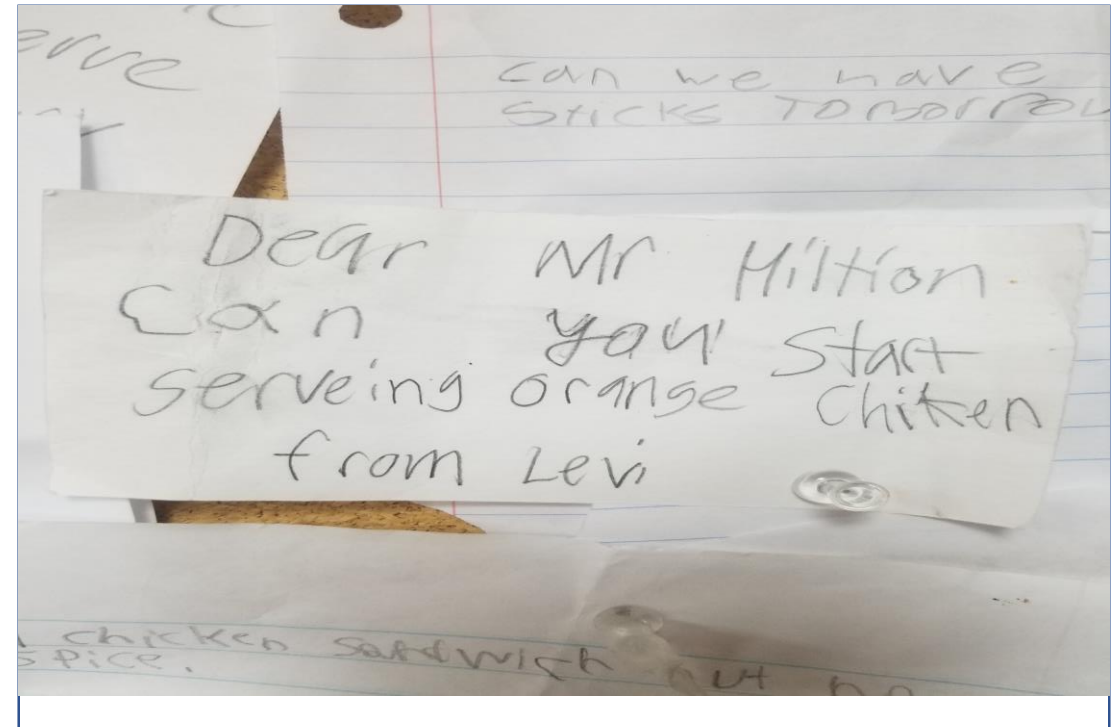 erve
can we have
sticks Tomorrow
Dear Mr Hiltion
Can you Start
serveing orange Chiken
from Levi
chicken sandwich but no
spice.